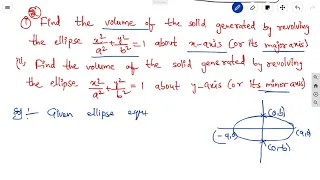 ②
① Find the volume of the solid generated by revolving
the ellipse x²/a² + y²/b² = 1 about x-axis (or its major axis)
ii) Find the volume of the solid generated by revolving
the ellipse x²/a² + y²/b² = 1 about y-axis (or its minor axis)
Given ellipse eqn
(0,b)
(-a,0)
(a,0)
(0,-b)